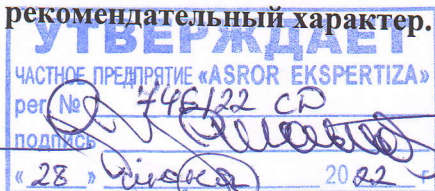 рекомендательный характер.
УТВЕРЖДАЕТ
ЧАСТНОЕ ПРЕДПРЯТИЕ «ASROR EKSPERTIZA»
рег № 746/22 СД
подпись
« 28 » 2022